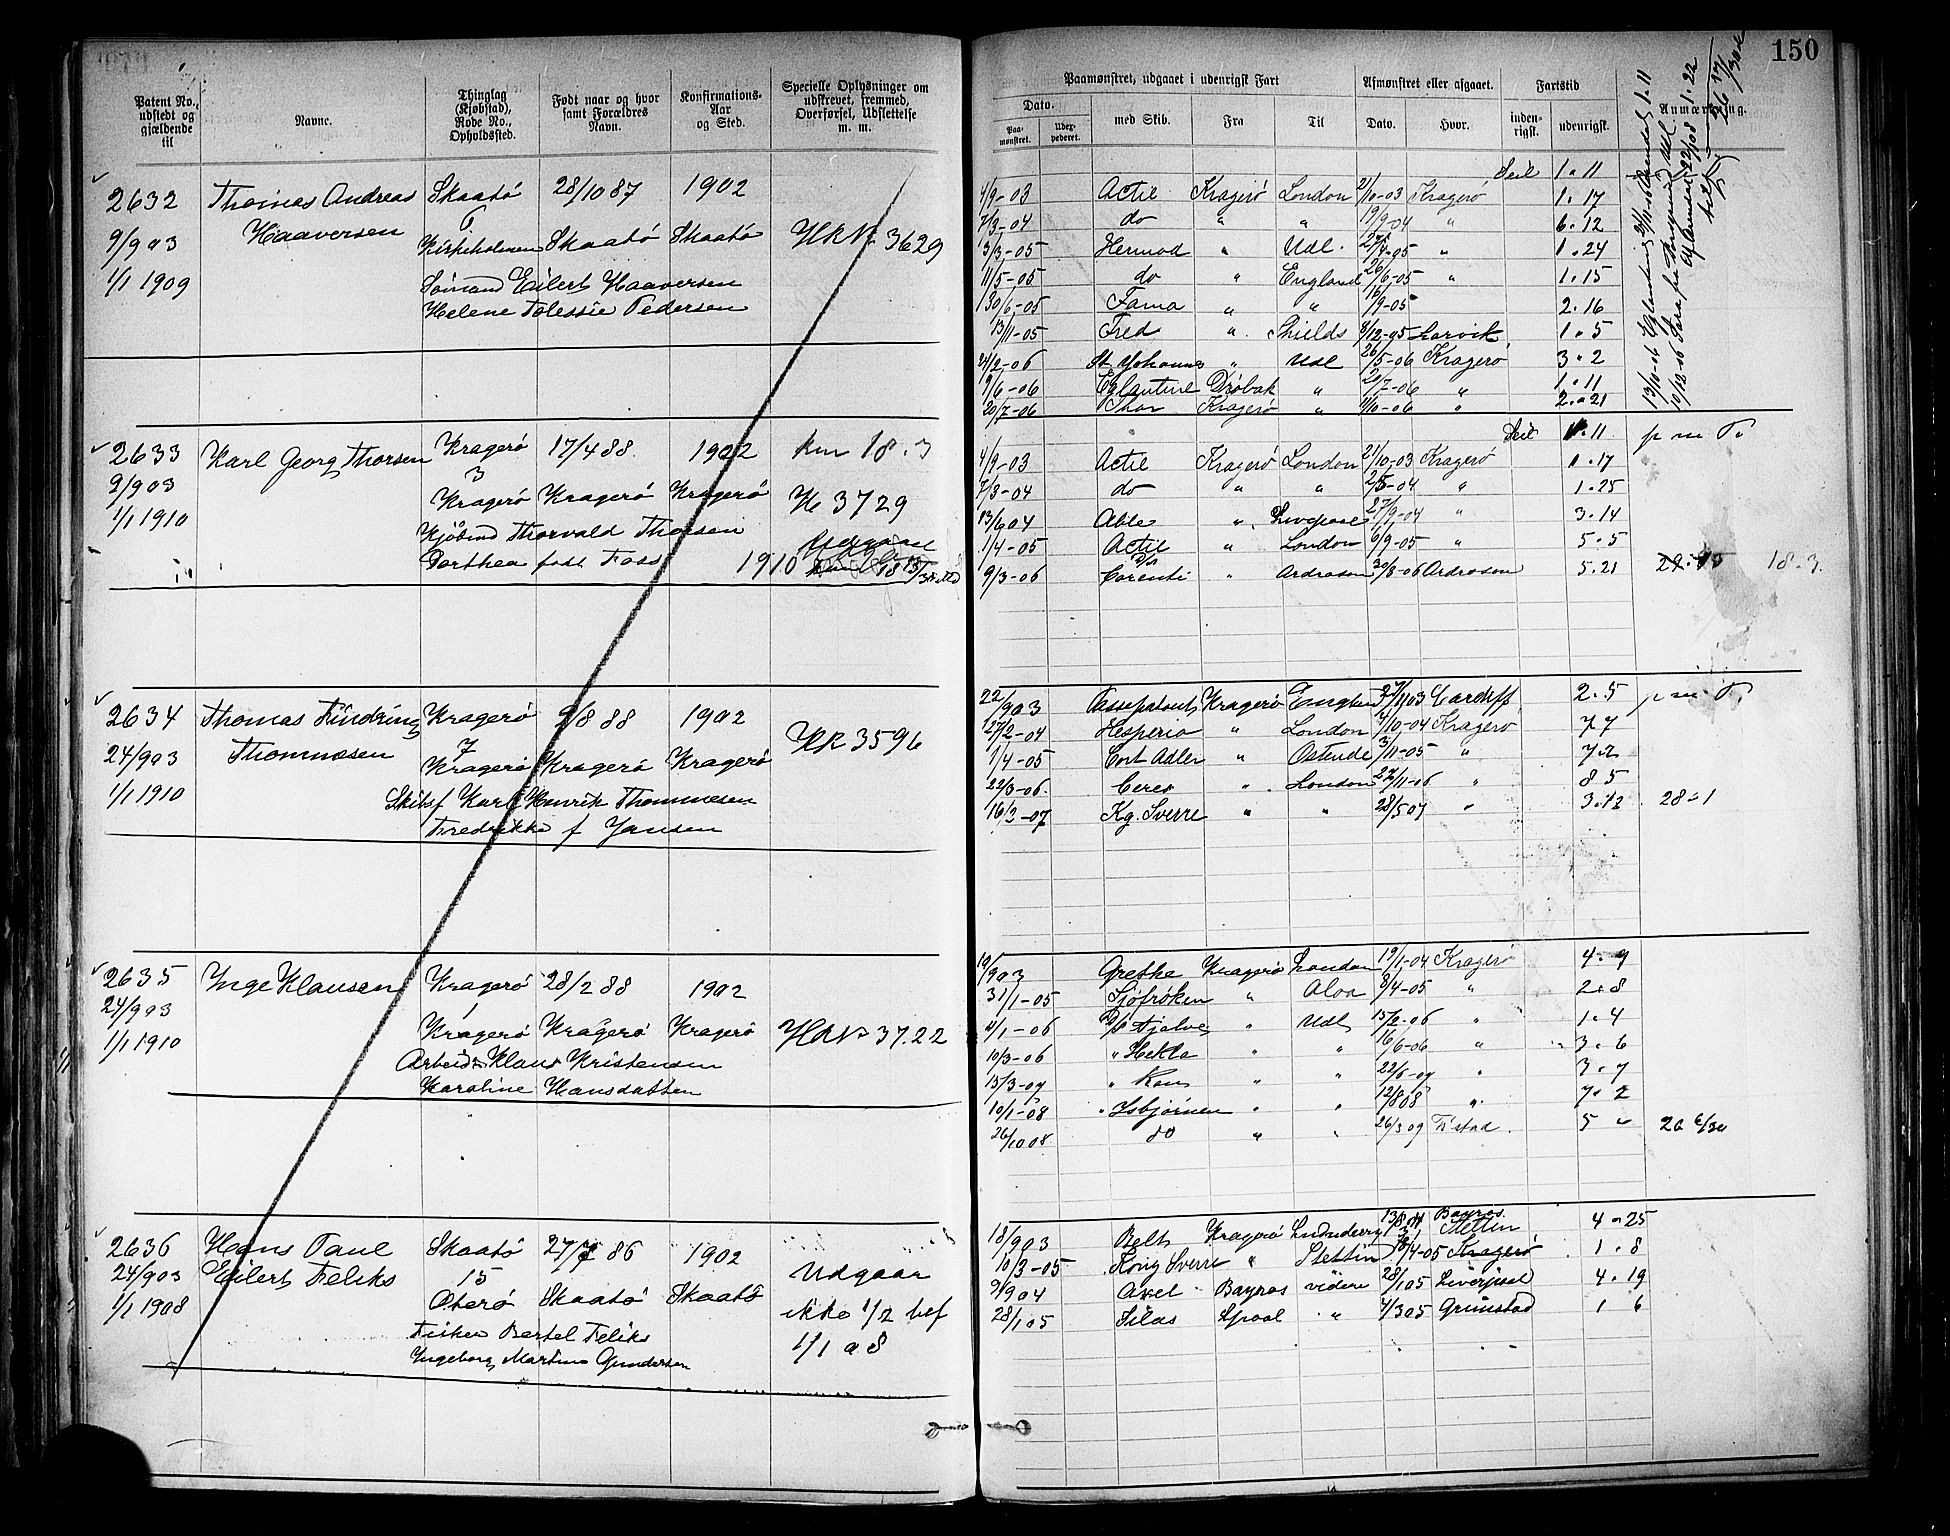 150
Patent No., udstedt og gjældende til
Navne.
Thinglag (Kjøbstad), Rode No., Opholdssted.
Født naar og hvor samt Forældres Navn.
Konfirmations-Aar og Sted.
Specielle Oplysninger om udskrevet, fremmed, Overførsel, Udslettelse m. m.
Paamønstret, udgaaet i udenrigsk Fart
Afmønstret eller afgaaet.
Fartstid
Anmærkning.
Dato.
Paa-mønstret.
Udex-pederet.
med Skib.
Fra
Til
Dato.
Hvor.
inden-rigsk.
udenrigsk.
2632 Thomas Andreas Skaatø 28/10 87 1902
9/9 03 Haaversen 6
Kirkeholmen Skaatø Skaatø HR No 3629
1/1 1909 Sømand Eilert Haaversen
Helene Tolessie Pedersen
Seil 1.11
4/9-03 Actil Kragerø London 21/10-03 Kragerø 1.17
7/3-04 do " " 19/9-04 " 6.12
13/3-05 Hermod " Udl. 27/4-05 " 1.24
11/5-05 do " England 26/6-05 " 1.15
30/6-05 Fama " " 16/9-05 2.16
13/11-05 Fred " Shields 8/12-05 Larvik 1.5
24/2-06 St. Johannes " Udl 26/5-06 Kragerø 3.2
9/6-06 Eglantine Drøbak " 20/7-06 " 1.11
20/7-06 Thor Kragerø " 11/10-06 " 2.21
2633 Karl Georg Thorsen Kragerø 17/4 88. 1902 km 18.3
9/9 03 3
1/1 1910 Kragerø Kragerø Kragerø H 3729
Kjøbmd Thorvald Thorsen
Dorthea født Foss 1910
Seil 1.11 p m T.
4/9-03 Actil Kragerø London 21/10-03 Kragerø 1.17
7/3-04 do " " 2/5-04 " 1.25
13/6 04 Able " Liverpool 27/9-04 " 3.14
1/4-05 Actil " London 6/9-05 " 5.5
9/3-06 Corenti " Ardrosan 30/8-06 Ardrosan 5.21 18.3.
2634 Thomas Findring Kragerø 2/8 88 1902
24/9 03 Thommesen 7 HR 3596
Kragerø Kragerø Kragerø
1/1 1910 Skibsf Karl Henrik Thommesen
Fredrikke f Jansen
22/9 03 Kragerø Cardiff 2.5 p m T.
27/2-04 Hesperia " London 7/10-04 Kragerø 7 7
1/4-05 Cort Adler " Ostende 3/11-05 " 7.2
22/3-06. Ceres " London 22/11-06 " 8 5
16/3-07 Kg. Sverre " " 28/5 07 " 3.12 28.1
2635 Inge Klausen Kragerø 28/2 88 1902
24/9 03 1
1/1 1910 Kragerø Kragerø Kragerø HR No 37.22
Arbeids. Klaus Kristensen
Karoline Hansdatter
19/9 03 Grethe Kragerø London 19/1-04 Kragerø 4.9
31/1-05 Sjøfrøken " Aloa 9/4-05 " 2.8
4/1-06 D/S Tjalve " Udl 15/2-06 " 1.4
10/3-06 " Hekla " " 16/6-06 " 3.6
13/3-07 " Kong " " 22/6-07 " 3.7
10/1-08 " Isbjørnen " " 12/8 08 " 7.2
26/10 08 do " " 26/3 09 F.stad. 5 " 26 6/30
2636 Hans Paul Skaatø 27/7 86 1902
24/9 03 Eilert Feliks 15 Udgaar
1/1 1908 Oterø Skaatø Skaatø ikke 1/2 bef
Fisker Bertel Feliks 1/1 08
Ingeborg Martine Gundersen
18/9 03 Belt Kragerø Stettin 4.25
10/3-05 Kong Sverre " Stettin 18/4-05 Kragerø 1.8
9/9 04 Axel Bayros videre 28/1 05 Liverpool 4.19
28/1 05 Silas Lpool " 4/3 05 Grimstad 1 6